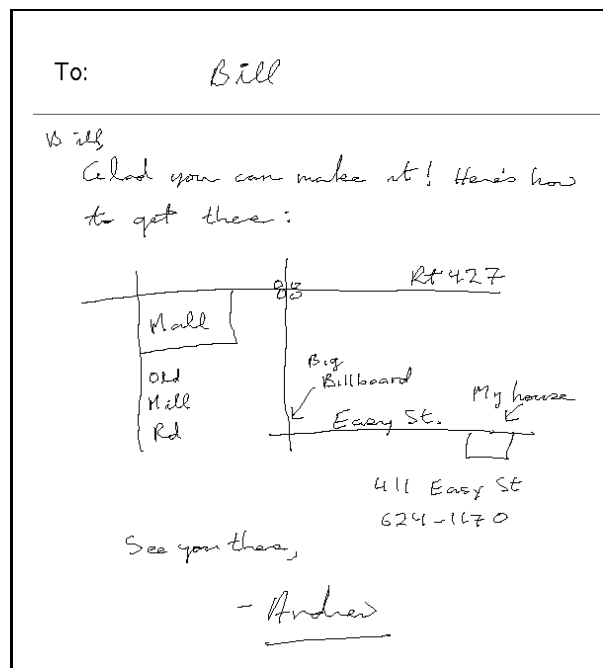 To: Bill
Bill,
Glad you can make it! Here's how
to get there:
Rt 427
Mall
Old
Mill
Rd
Big
Billboard
My house
Easy St.
411 Easy St
624-1170
See you there,
- Andrew